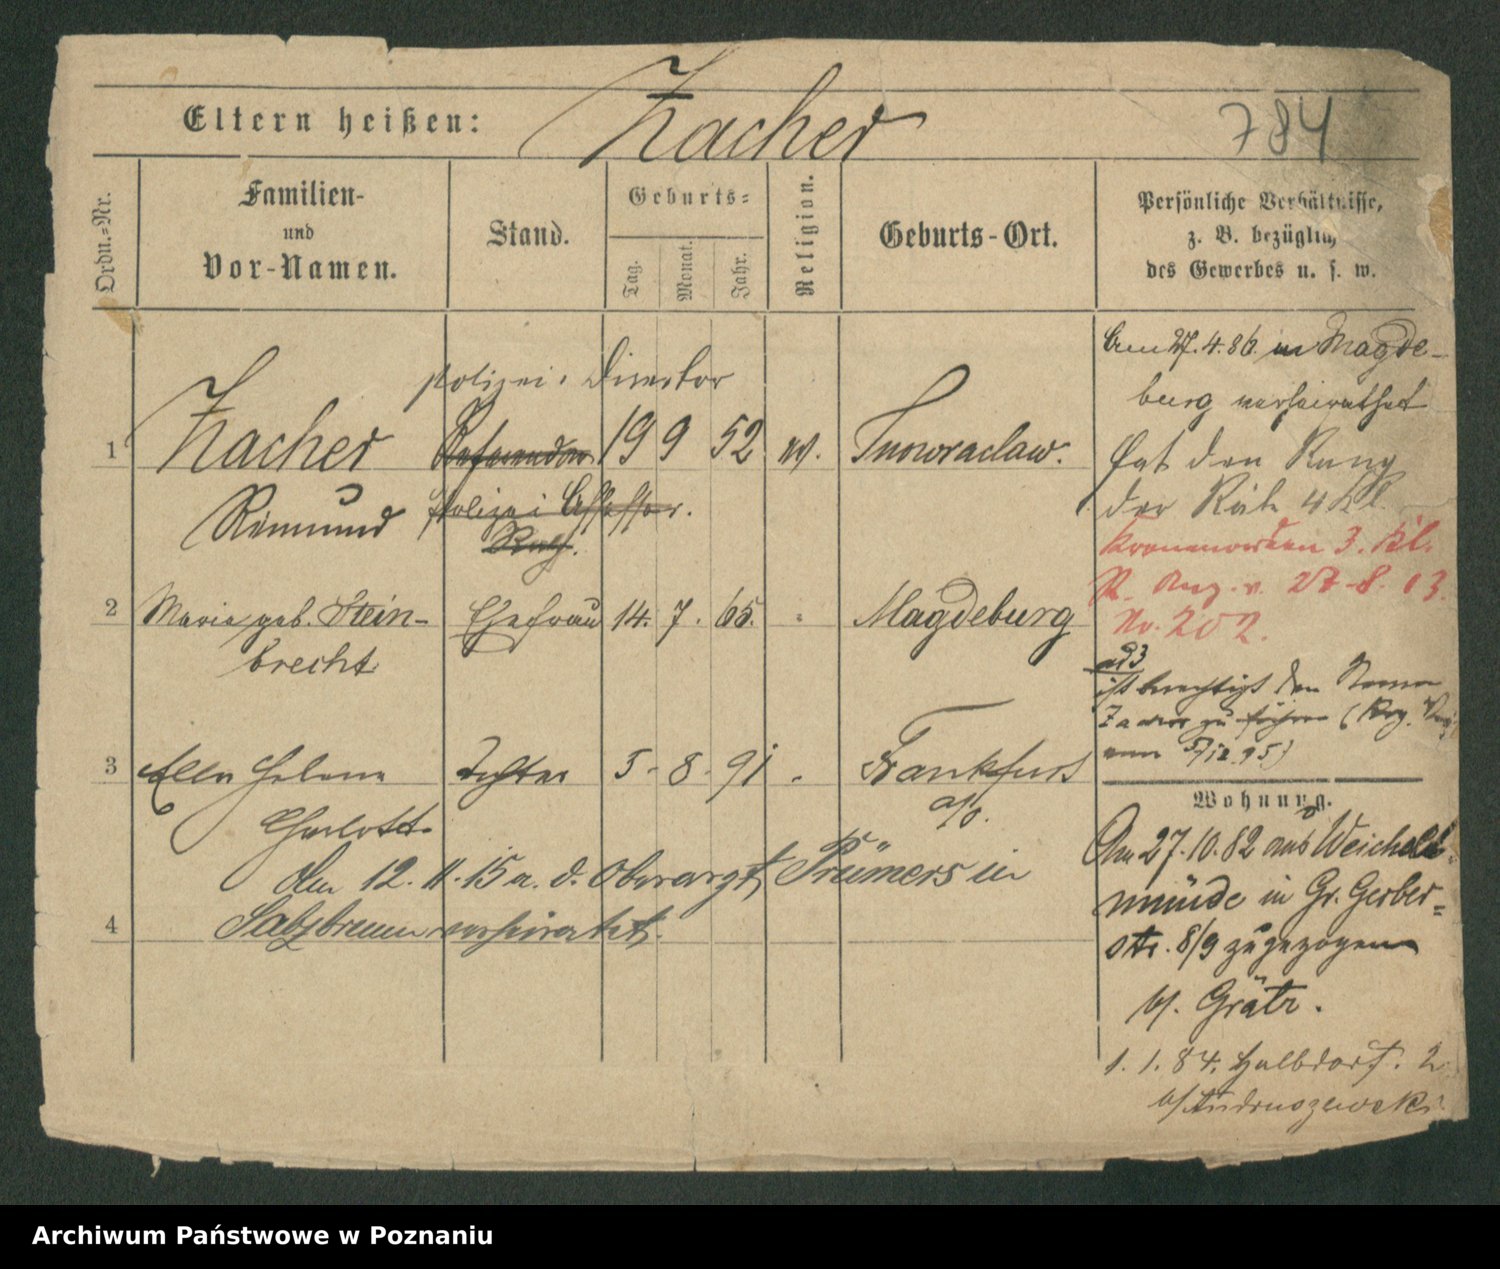 Eltern heißen: Zacher
784
Ordn.=Nr.
Familien-
und
Vor-Namen.
Stand.
Geburts=
Tag.
Monat.
Jahr.
Religion.
Geburts-Ort.
Persönliche Verhältnisse,
z. B. bezüglich
des Gewerbes u. s. w.
Polizei-Director
1 Zacher Referendar 19 9 52 Inowraclaw.
Polizei Assessor.
Rath.
2 Maria geb. Stein- Ehefrau 14. 7. 65. Magdeburg
brecht
3 Ella Helene Tochter 5. 8. 91 Frankfurt
a/O.
Charlotte
Am 12. 11. 15 a. d. Oberarzt Prümers in
4 Salzbrunn verheirathet.
Am 27. 4. 86. in Magde-
burg verheirathet
Hat den Rang
der Räthe 4 Kl.
Kronenorden 3. Kl.
27.8.13.
No. 202.
ad 3
ist berechtigt den Namen
Zacher zu führen
vom 5/12. 95)
Wohnung.
Am 27.10.82 aus Weichsel-
münde in Gr. Gerber=
str. 8/9 zugezogen
b/. Grätz.
1. 1. 84. Halbdorfst. 2
b/ Andruszewski
Archiwum Państwowe w Poznaniu